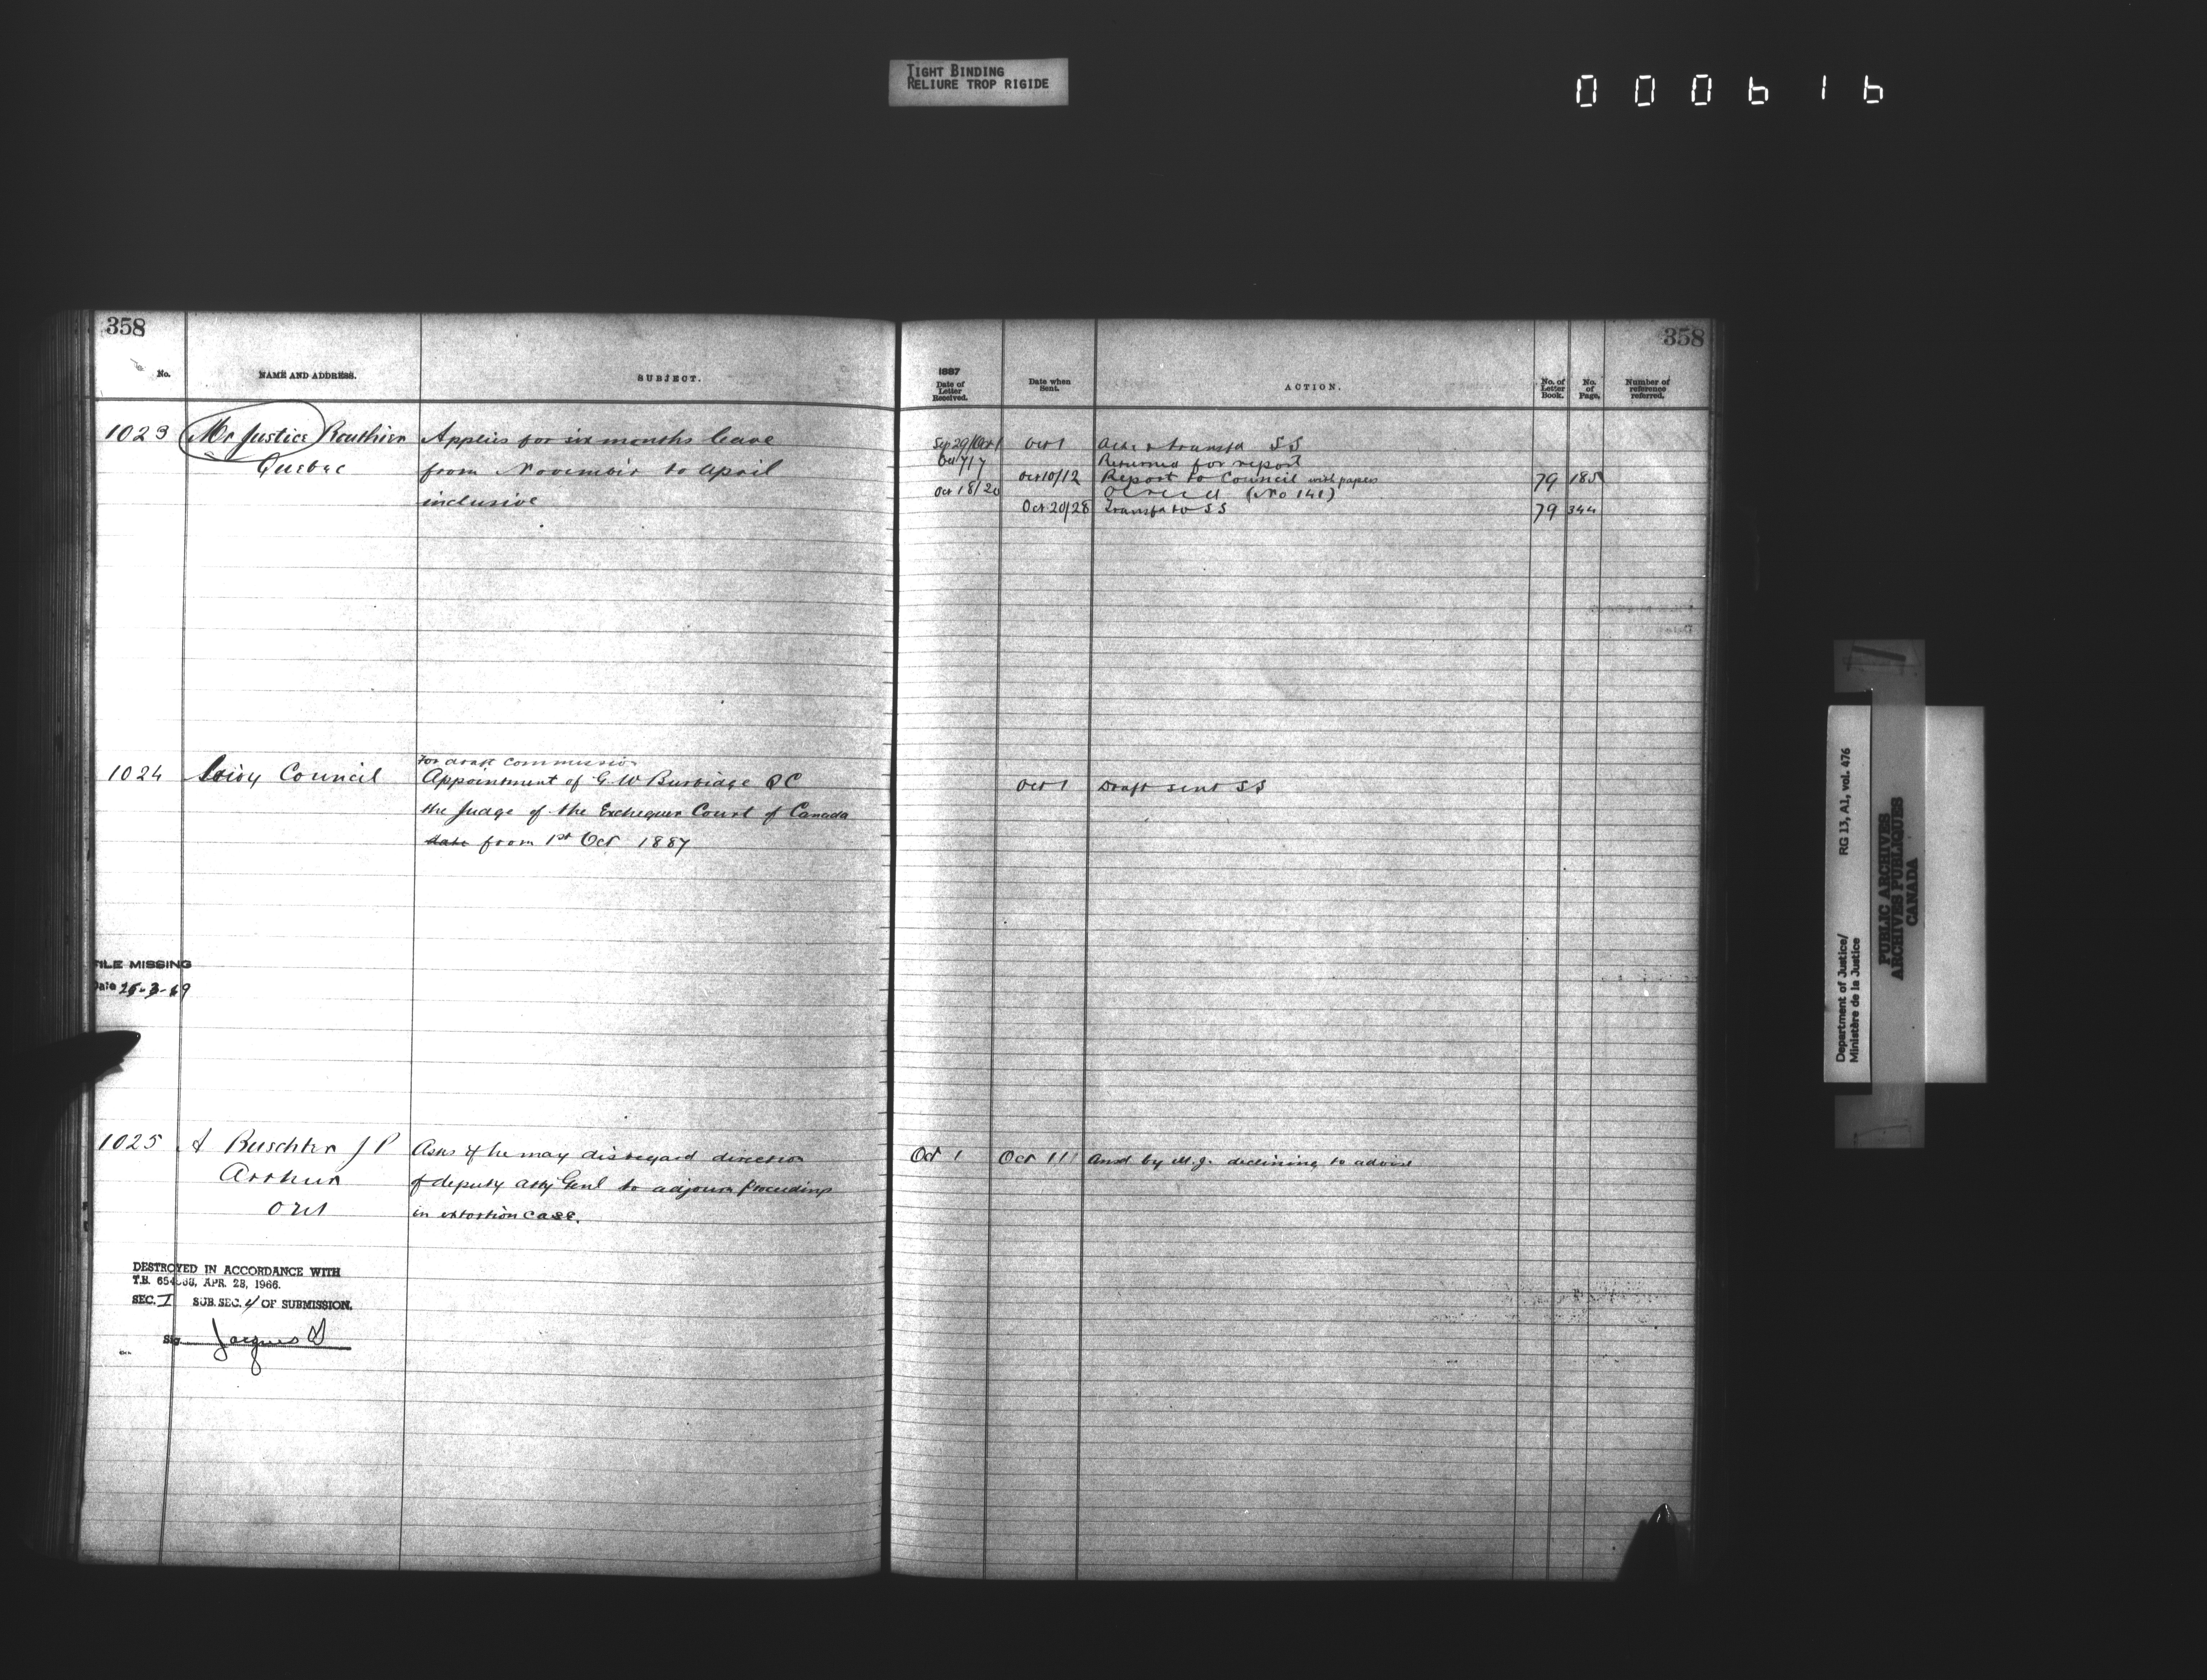 TIGHT BINDING
RELIURE TROP RIGIDE
000616
358
No.
NAME AND ADDRESS.
SUBJECT.
1023 Mr Justice Routhier Applies for six months leave
Quebec from November to April
inclusive
1024 Privy Council
For draft commission
Appointment of G. W. Burbidge QC
the Judge of the Exchequer Court of Canada
date from 1st Oct 1887
FILE MISSING
Date 25-3-69
1025 A Buschten J P Asks if he may disregard direction
Arthur of deputy atty Genl to adjourn proceedings
Ont in extortion case.
DESTROYED IN ACCORDANCE WITH
T.B. APR. 28, 1966.
SEC. I SUB. SEC. 4 OF SUBMISSION.
Sig. Jacques
358
1887
Date of Letter Received.
Date when Sent.
ACTION.
No. of Letter Book.
No. of Page.
Number of reference referred.
Sep 29/Oct 1 Oct 1 Ackd & transfd SS
Oct 7/7 Returned for report
Oct 10/12 Report to Council with papers 79 185
Oct 18/20 (No 141)
Oct 20/28 Transfd to SS 79 344
Oct 1 Draft sent SS
Oct 1 Oct 11 Ansd by M.J. declining to advise
Department of Justice/ RG 13, A1, vol. 476
Ministère de la Justice
PUBLIC ARCHIVES
ARCHIVES PUBLIQUES
CANADA